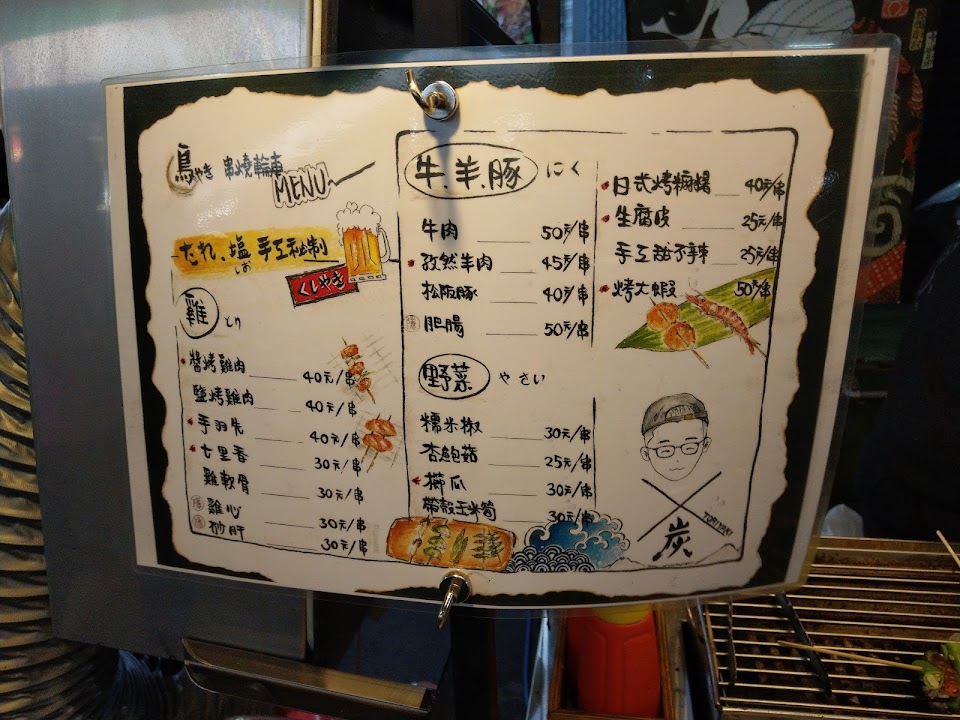 鳥やき 串燒輪車
MENU
たれ、塩 手工秘制
しお
くしやき
雞 とり
醬烤雞肉 40元/串
鹽烤雞肉 40元/串
手羽先 40元/串
七里香 30元/串
雞軟骨 30元/串
雞心 30元/串
砂肝 30元/串
牛、羊、豚 にく
牛肉 50元/串
孜然羊肉 45元/串
松阪豚 40元/串
肥腸 50元/串
野菜 やさい
糯米椒 30元/串
杏鮑菇 25元/串
櫛瓜 30元/串
帶殼玉米筍 30元/串
日式烤麻糬 40元/串
生腐皮 25元/串
手工甜不辣 25元/串
烤大蝦 50元/串
TORIYAKI
炭